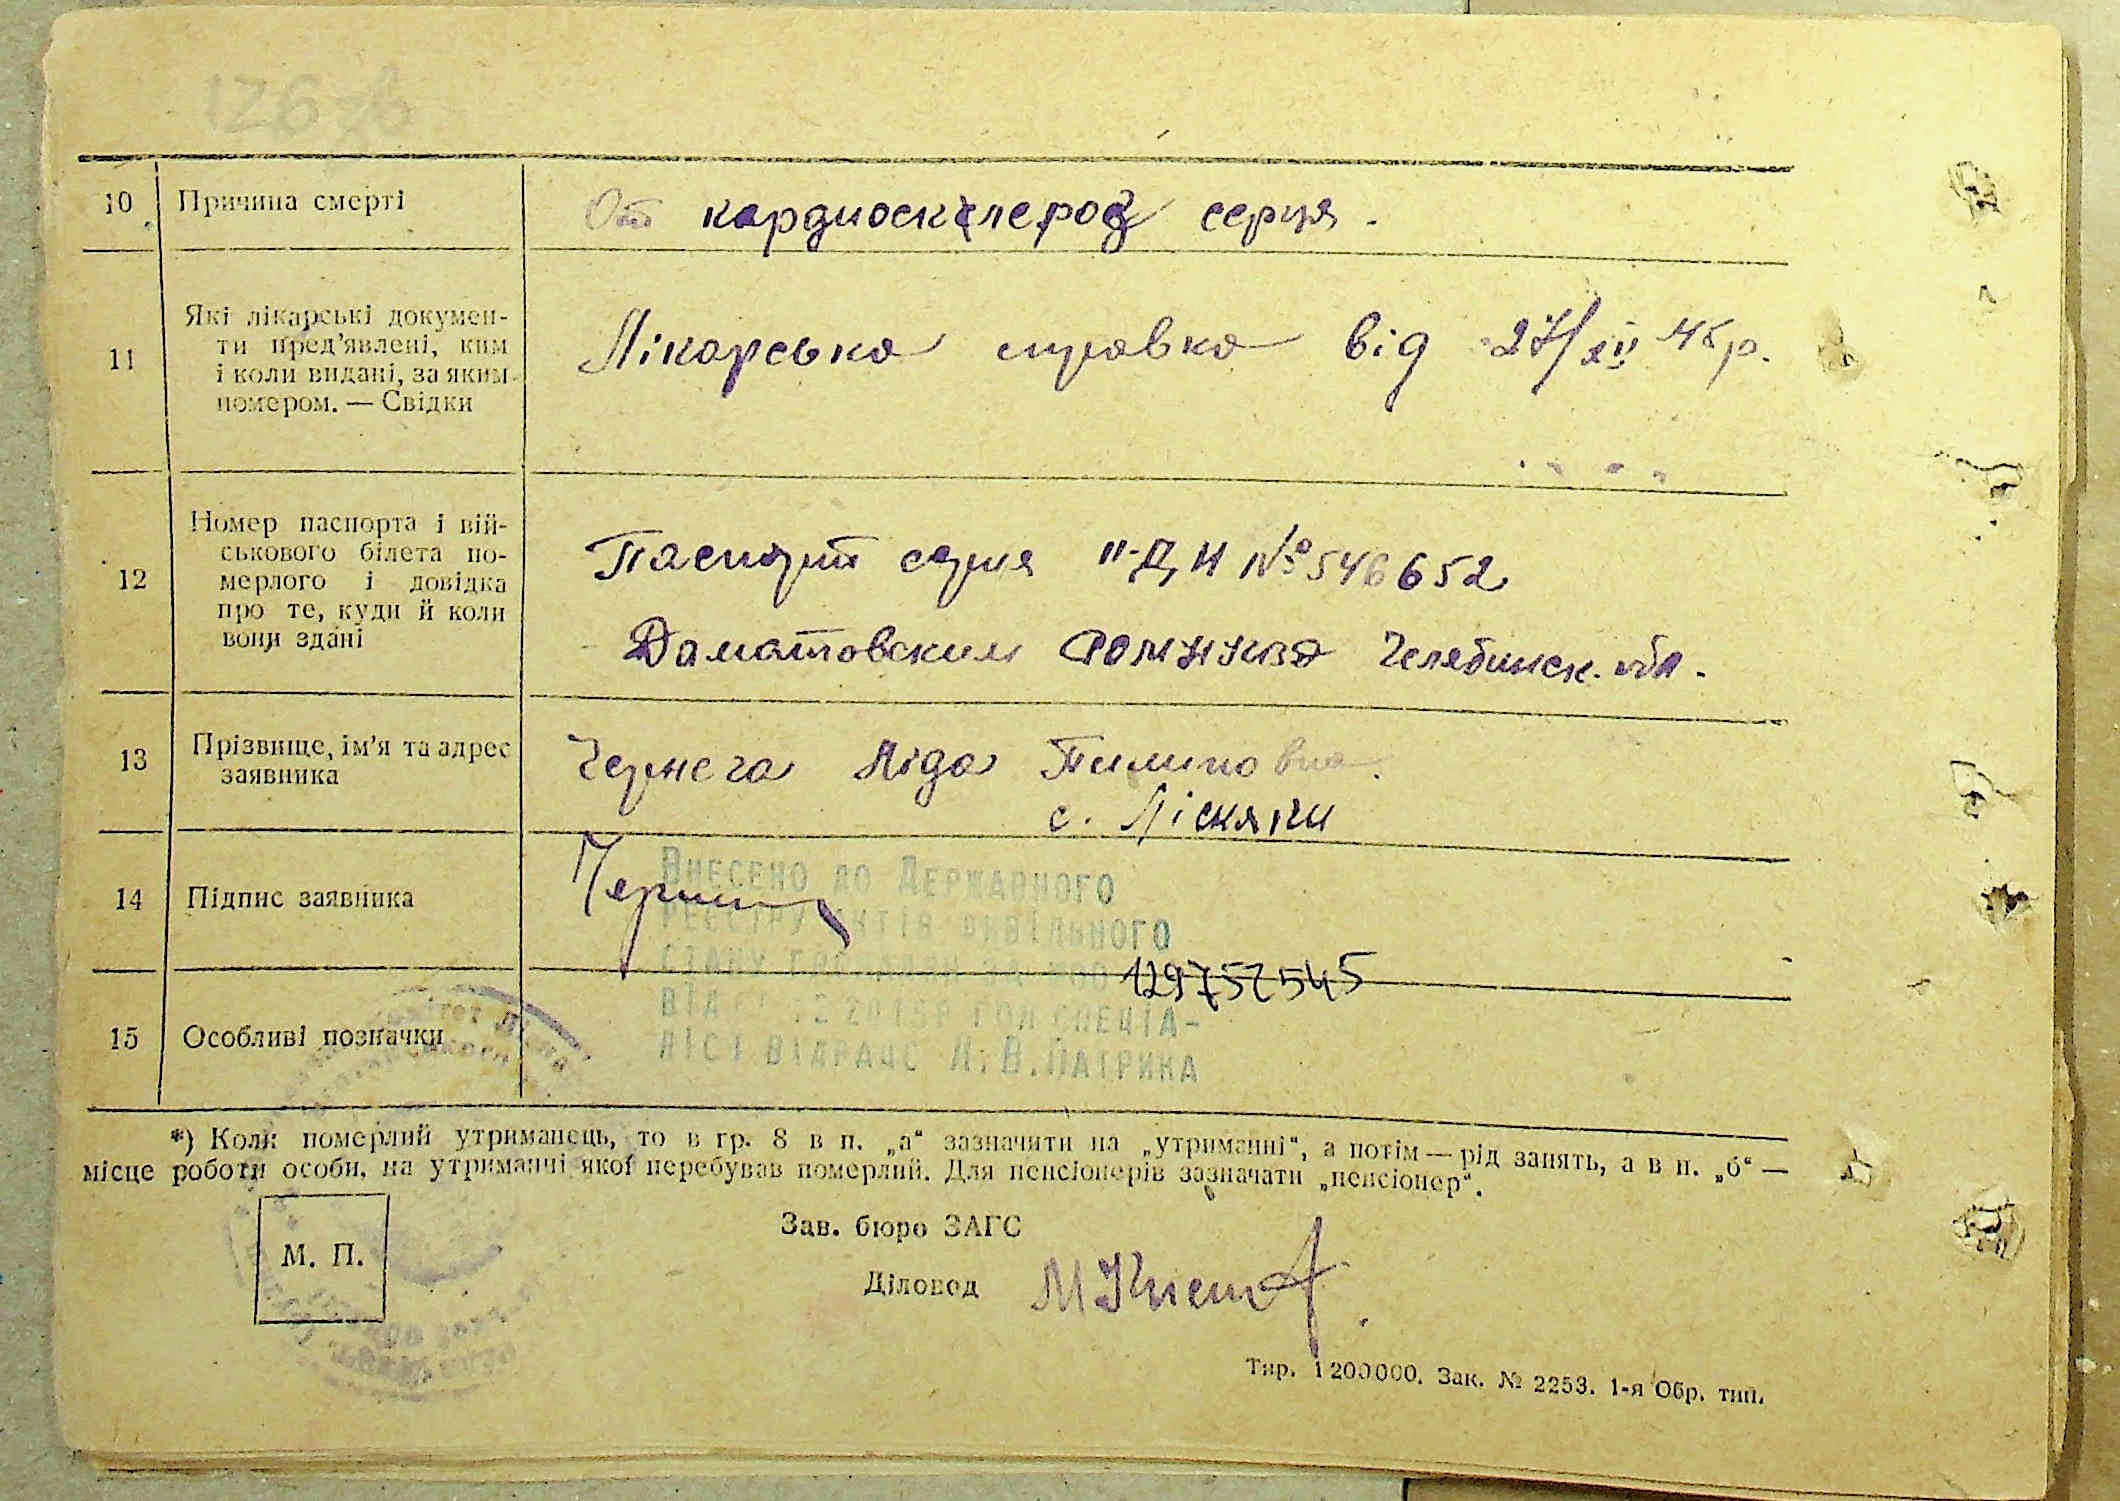 126 зв
10 Причина смерті
От кардиосклероз серця.
11 Які лікарські докумен-
ти пред'явлені, ким
і коли видані, за яким
номером. — Свідки
Лікарська справка від 27/XII 46 р.
12 Номер паспорта і вій-
ськового білета по-
мерлого і довідка
про те, куди й коли
вони здані
Паспорт серия II-ДИ № 546652
Челябинск. обл.
13 Прізвище, ім'я та адрес
заявника
Чернега Ліда Пилиповна.
с. Ліскяги
14 Підпис заявника
Внесено до Державного
реєстру актів цивільного
стану громадян за
129752545
15 Особливі позначки
ліст ВДРАЦС
*) Коли померлий утриманець, то в гр. 8 в п. „а“ зазначити на „утриманні“, а потім — рід занять, а в п. „б“ —
місце роботи особи, на утриманні якої перебував померлий. Для пенсіонерів зазначати „пенсіонер“.
М. П.
Зав. бюро ЗАГС
Діловод
Тир. 1200000. Зак. № 2253. 1-я Обр. тип.